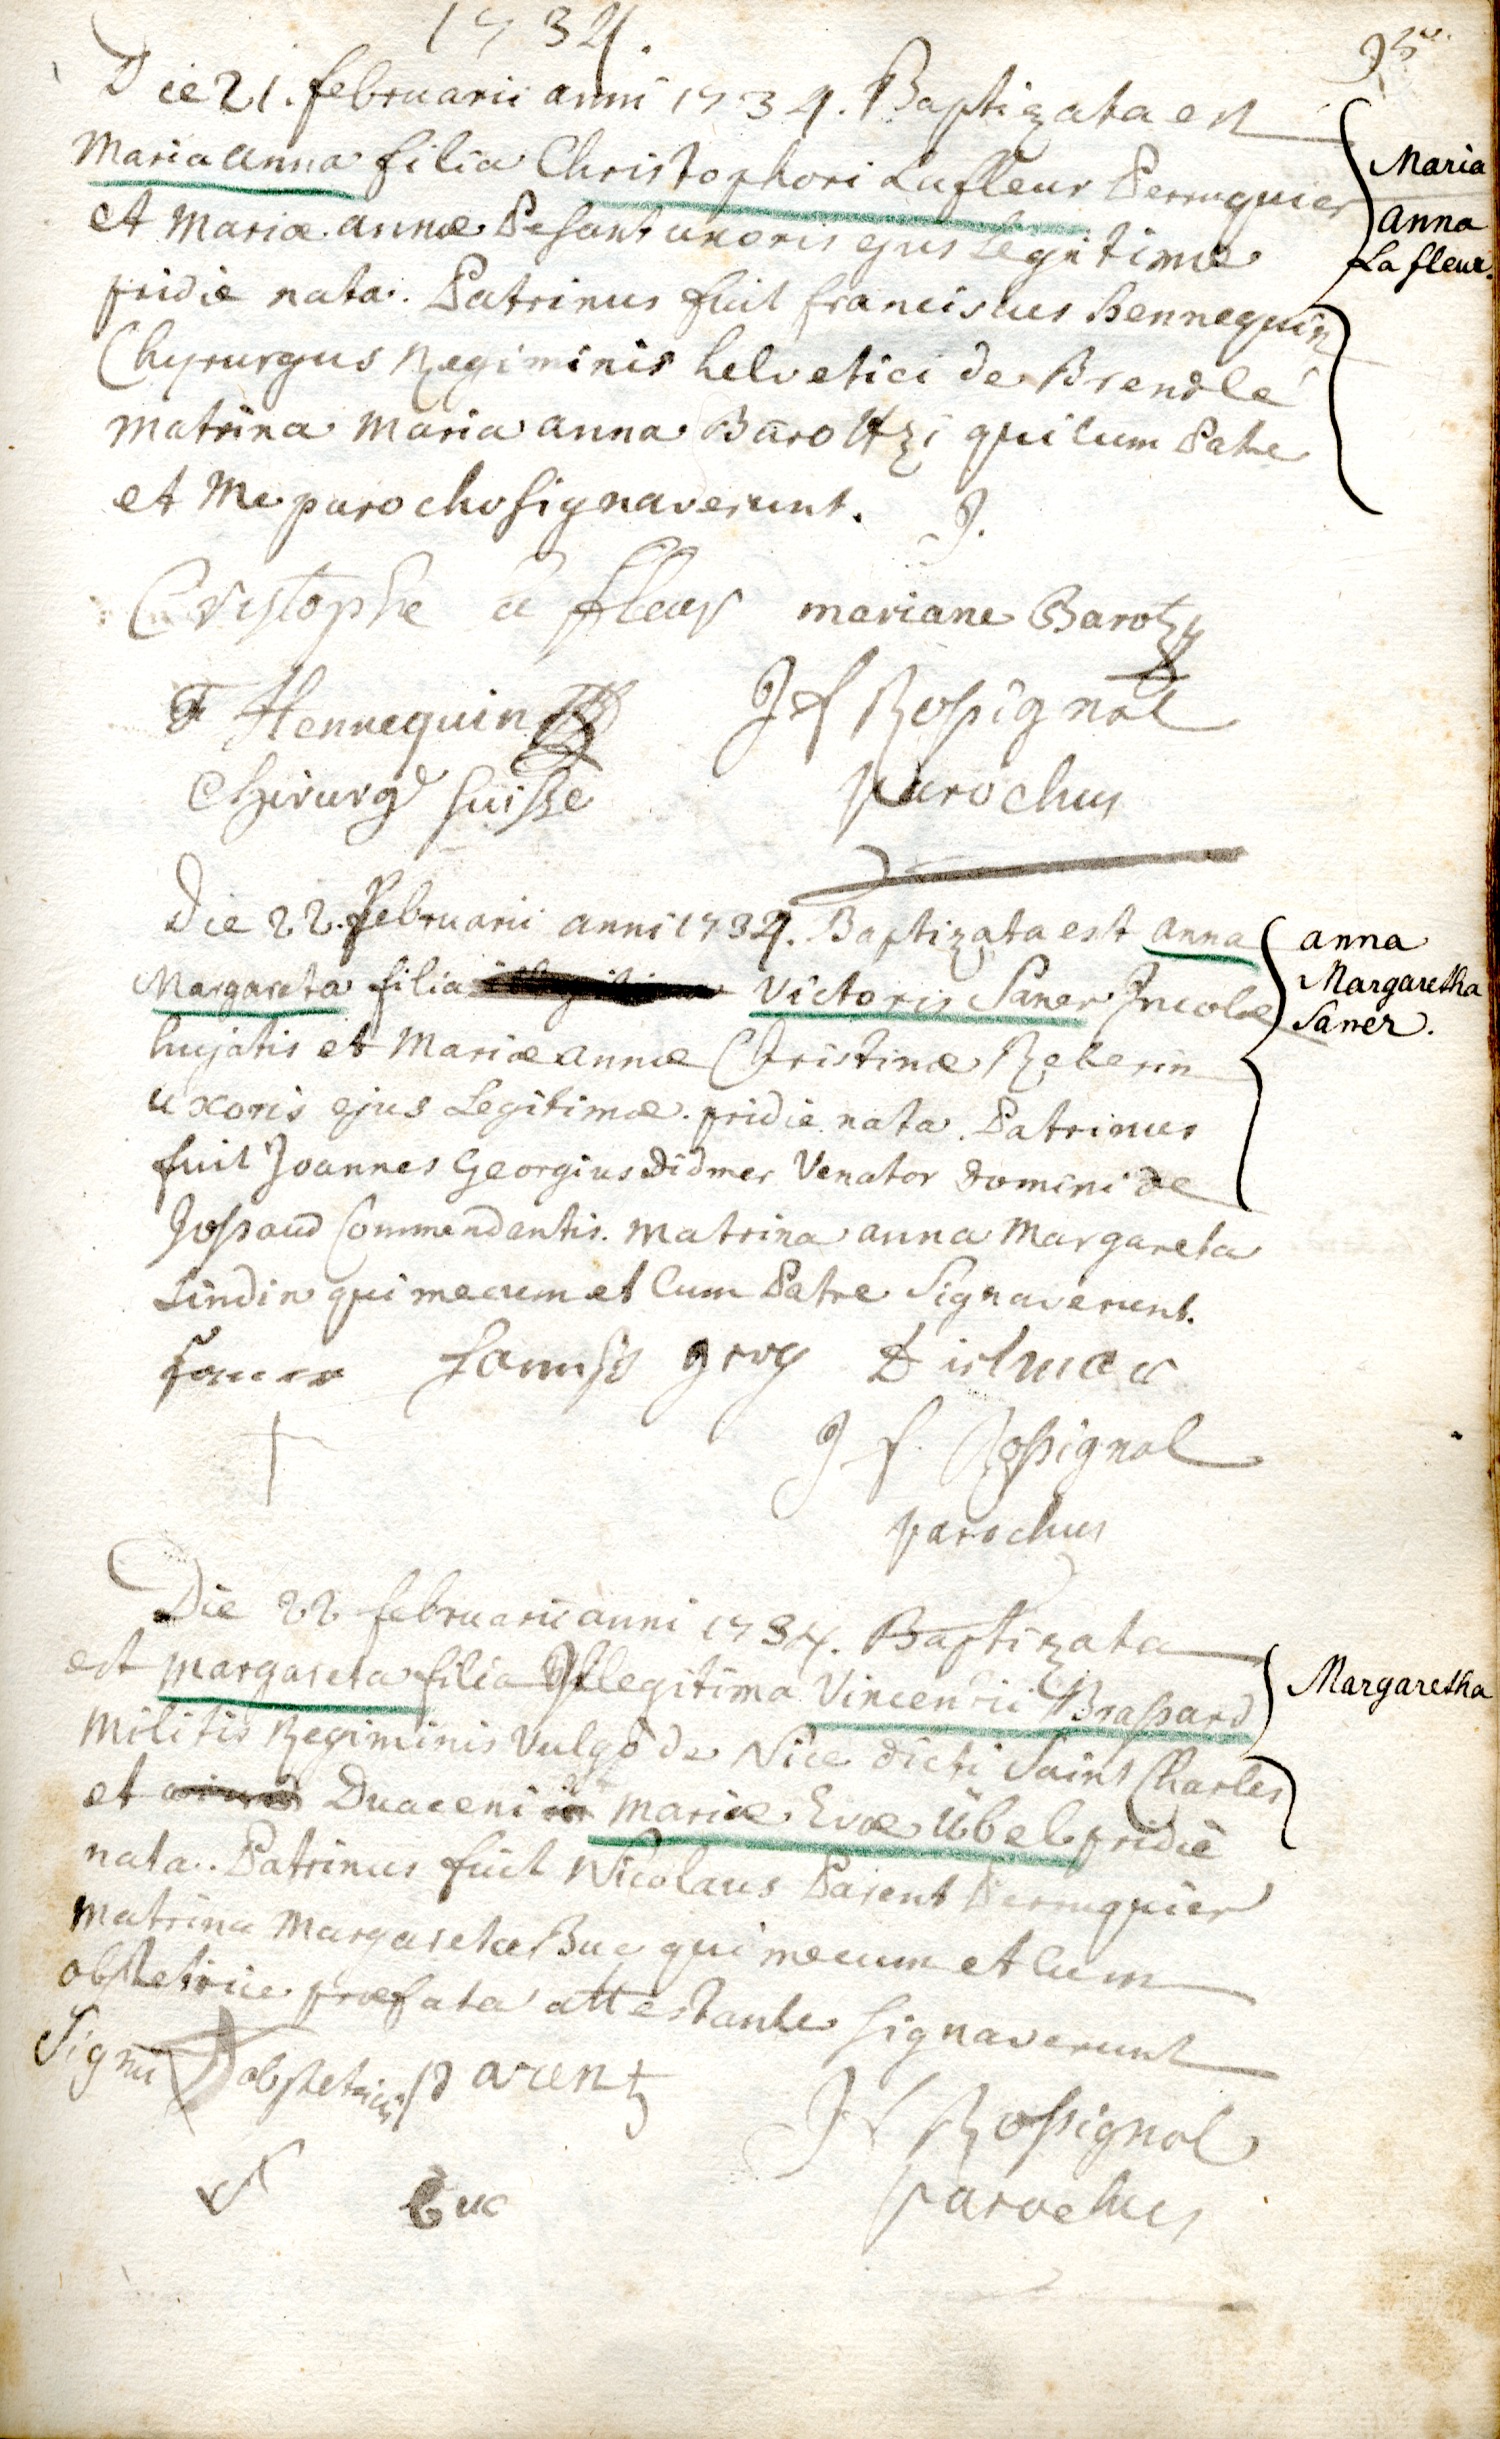 1734.
Die 21. februarii anni 1734. Baptizata est
Maria anna filia Christophori Lafleur Perruquier
et Mariæ annæ Pesant uxoris ejus Legitimæ
pridie nata. Patrinus fuit franciscus hennequin
Chyrurgus Regiminis helvetici de Brendlé
Matrina Maria anna Baroltzi qui cum Patre
et Me parocho signaverunt.
Maria
anna
La fleur.
Cristophe a fleur mariane Barotzy
F Hennequin
J f Rossignol
Chirurg suisse
parochus
Die 22. februarii anni 1734. Baptizata est anna
Margareta filia Victoris Saner Incolæ
hujatis et Mariæ annæ Christinæ Reberin
uxoris ejus Legitimæ pridie nata. Patrinus
fuit Joannes Georgius Didmer Venator Domini de
Jossaud Commendentis. Matrina anna Margareta
Lindin qui mecum et Cum Patre Signaverunt.
anna
Margaretha
Saner.
J f. Rossignol
parochus
Die 22 februarii anni 1734. Baptizata
est Margareta filia Illegitima Vincentii Brassard
Militis Regiminis Vulgo de Nice dicti Saint Charles
et Duaceni Mariæ Evæ Übel pridie
nata. Patrinus fuit Nicolaus Parent Perruquier
Matrina Margareta Buc qui mecum et Cum
obstetrice præfata attestante signaverunt
Margaretha
Signū obstetricis parent
J f Rossignol
Buc
parochus